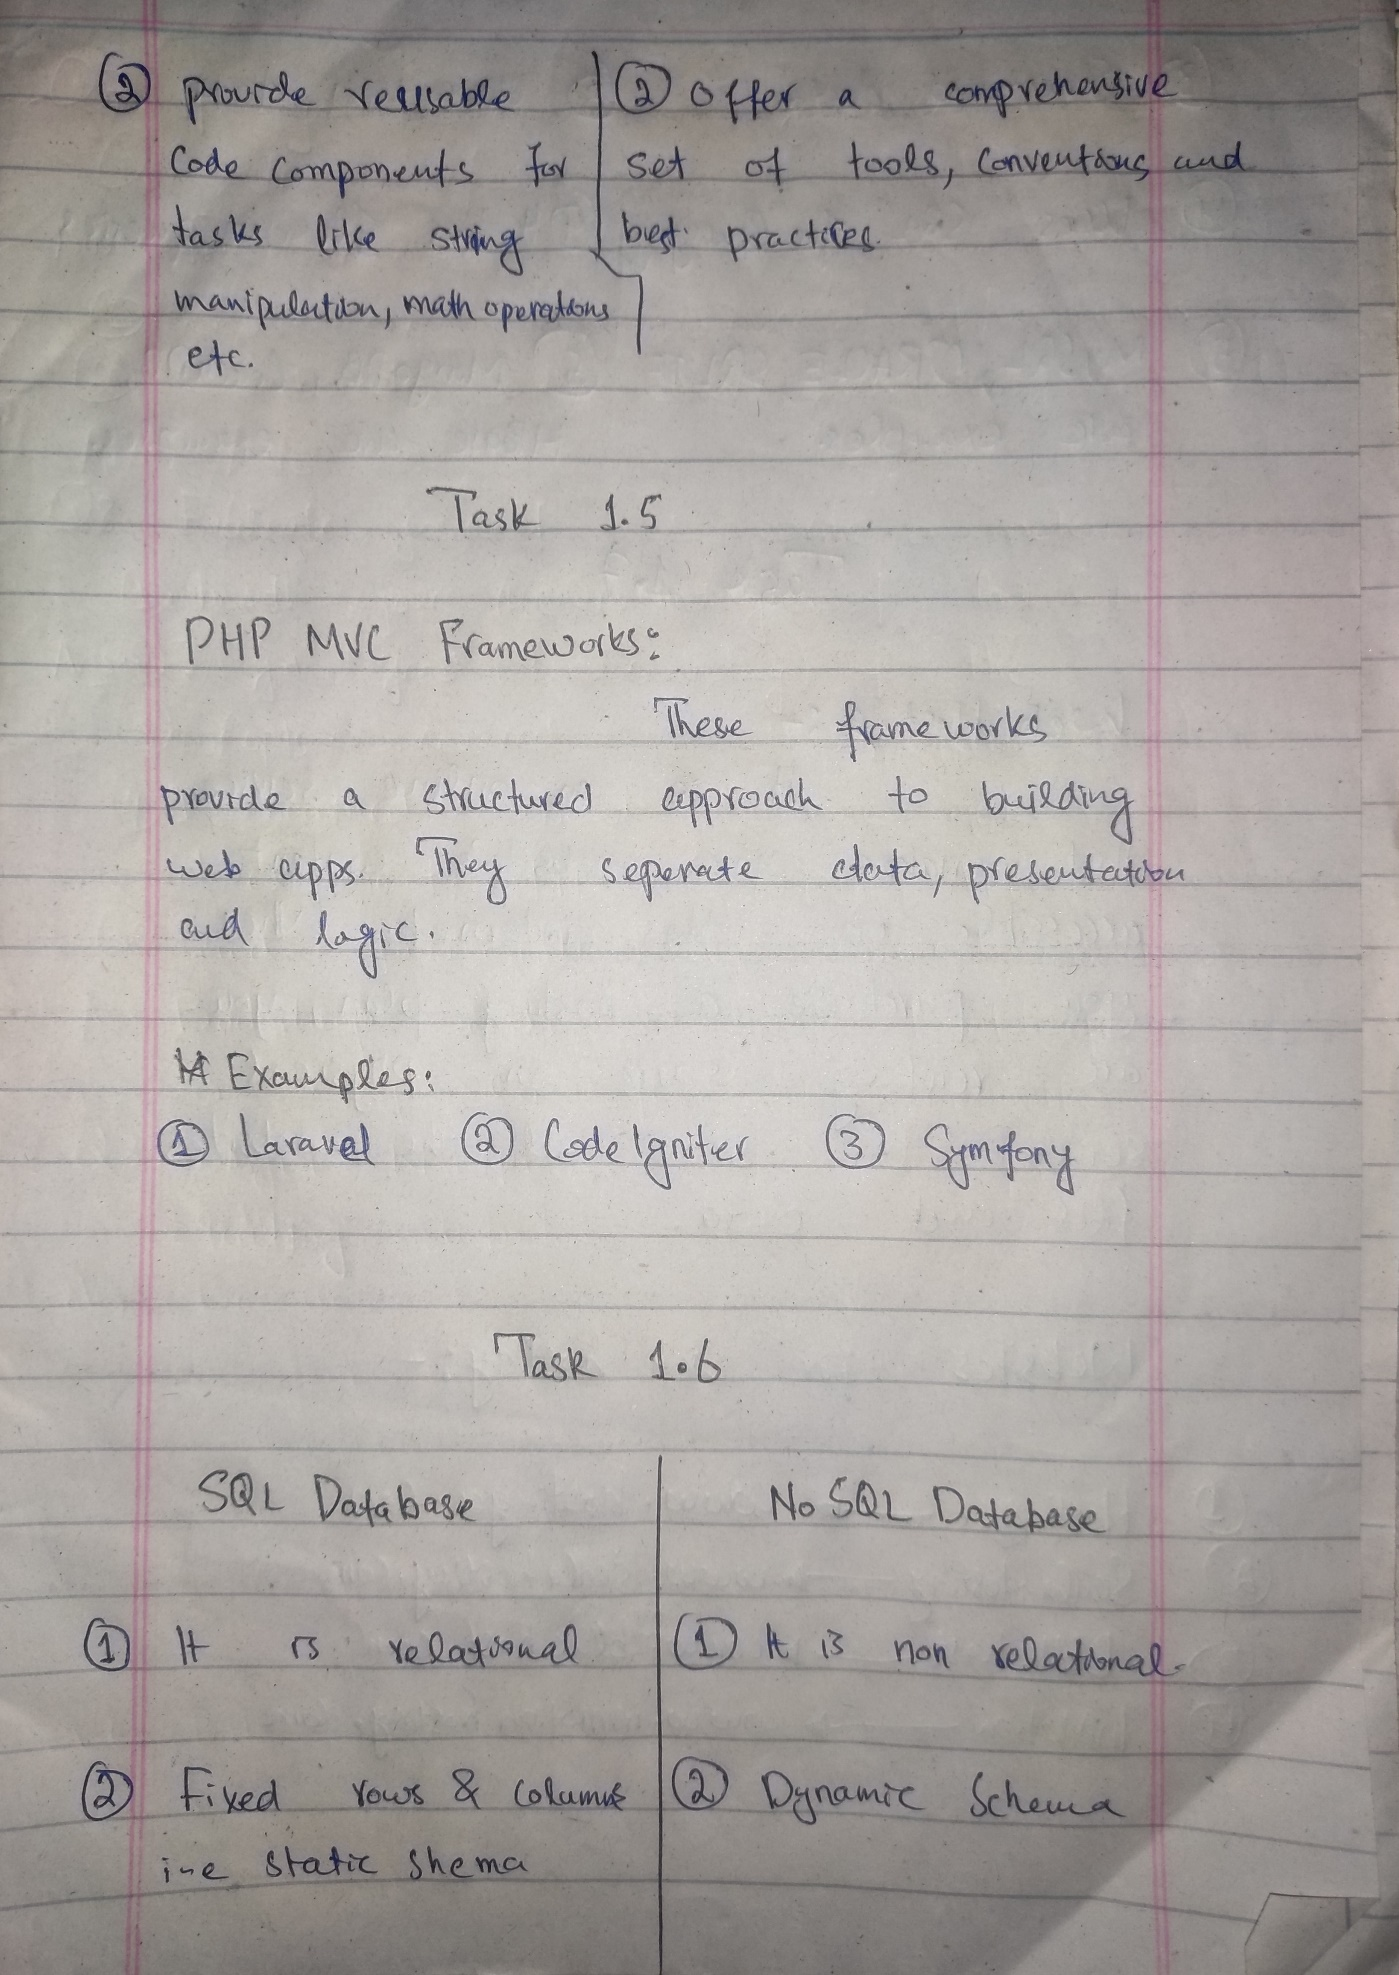 ② provide reusable
code components for
tasks like string
manipulation, math operations
etc.
② offer a comprehensive
set of tools, conventions and
best practices.
Task 1.5
PHP MVC Frameworks:
These frameworks
provide a structured approach to building
web apps. They seperate data, presentation
and logic.
Examples:
① Laravel ② CodeIgniter ③ Symfony
Task 1.6
SQL Database
① It is relational
② Fixed rows & columns
i-e static shema
No SQL Database
① It is non relational.
② Dynamic Schema